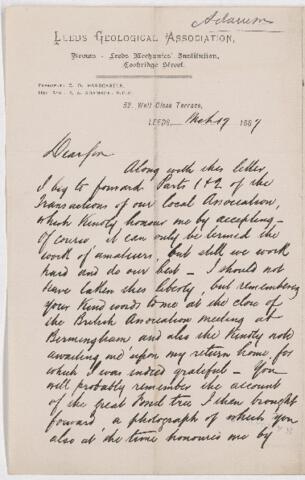 Adamson
LEEDS GEOLOGICAL ASSOCIATION,
Rooms - Leeds Mechanics' Institution,
Cookridge Street.
52, Well Close Terrace,
LEEDS, 19 1887
Dear Sir
Along with this letter
I beg to forward Parts 1 & 2 of the
Transactions of our local Association,
which kindly honour me by accepting -
Of course, it can only be termed the
work of amateurs, but still we work
hard and do our best - I should not
have taken this liberty, but remembering
your kind words to me at the close of
the British Association meeting at
Birmingham and also the kindly note
awaiting me upon my return home, for
which I was indeed grateful - You
will probably remember the account
of the great Fossil tree I then brought
forward a photograph of which you
also at the time honoured me by